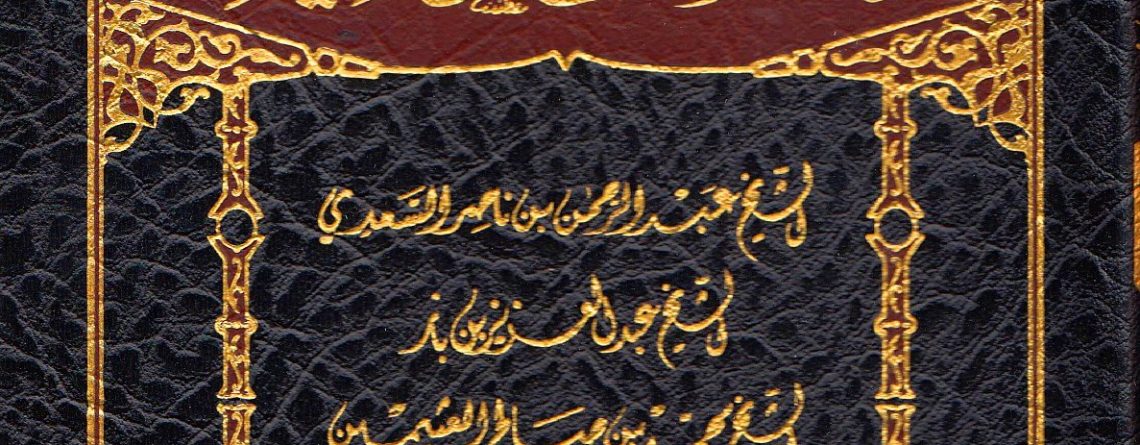 الشيخ عبد الرحمن بن ناصر السعدي
الشيخ عبد العزيز بن باز
الشيخ محمد بن صالح العثيمين